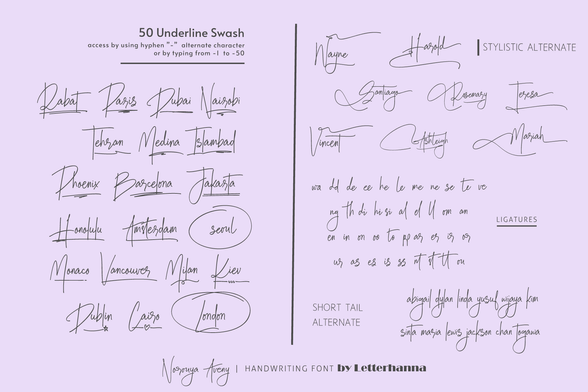 50 Underline Swash
access by using hyphen "-" alternate character
or by typing from -1 to -50
Rabat Paris Dubai Nairobi
Tehran Medina Islambad
Phoenix Barcelona Jakarta
Honolulu Amsterdam seoul
Monaco Vancouver Milan Kiev
Dublin Cairo London
Wayne Harold
STYLISTIC ALTERNATE
Santiago Rosemary Teresa
Vincent Ashleigh Mariah
wa dd de ee he le me ne se te ve
ng th di hi si al el ll om an
en in on oo to pp ar er ir or
ur as es is ss nt st tt ou
LIGATURES
SHORT TAIL
ALTERNATE
abigail dylan linda yusuf wijaya kim
sinta maria lewis jackson chan togawa
Norouya Aveny | HANDWRITING FONT by Letterhanna